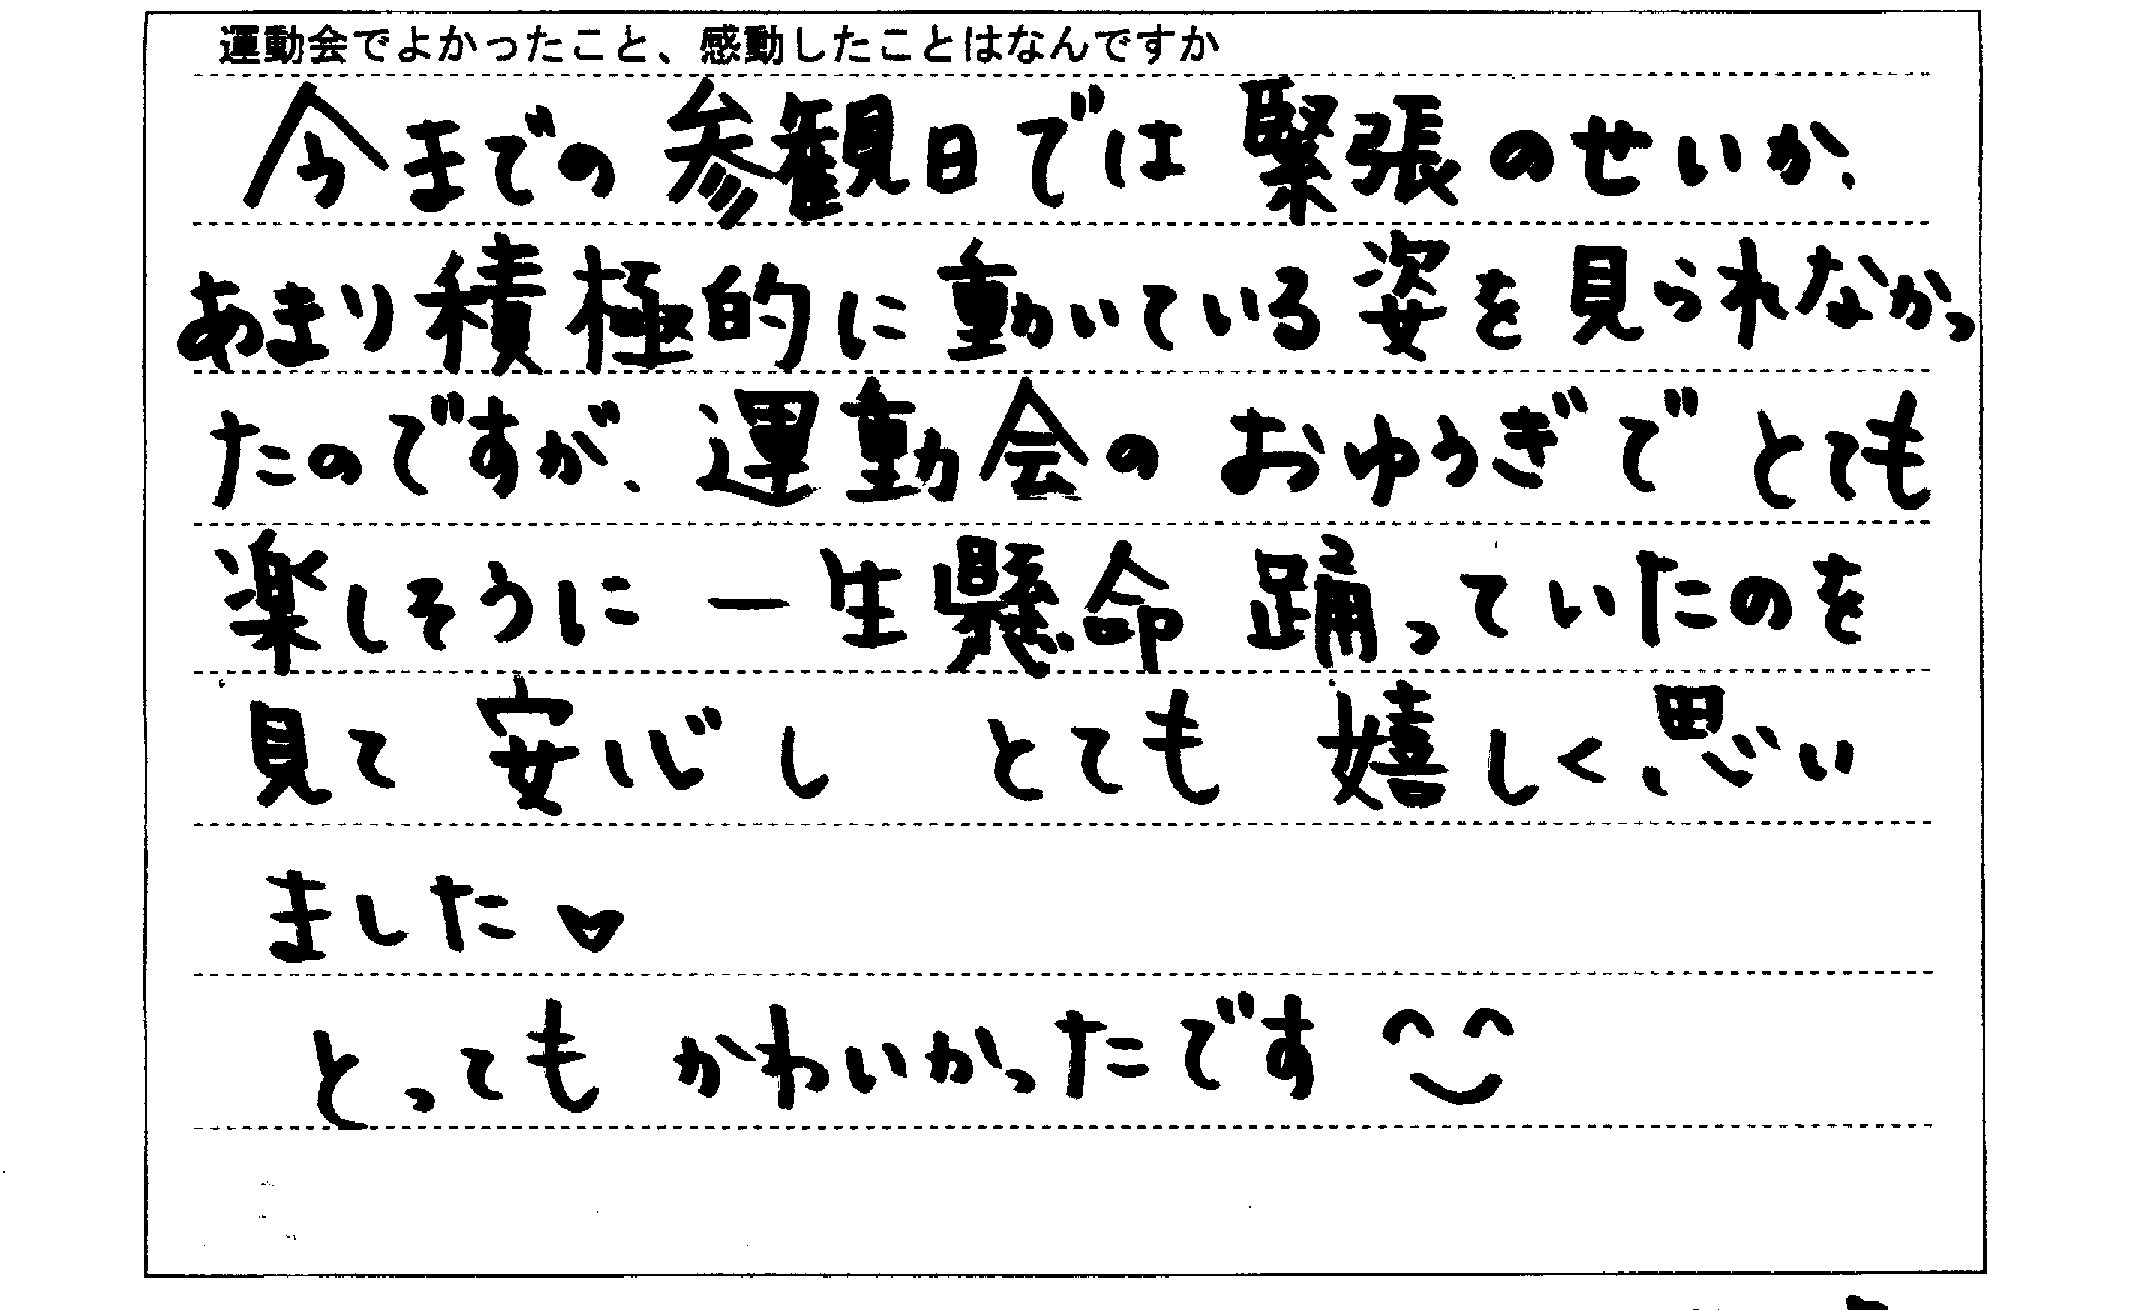 運動会でよかったこと、感動したことはなんですか
今までの参観日では緊張のせいか、
あまり積極的に動いている姿を見られなかっ
たのですが、運動会のおゆうぎでとても
楽しそうに一生懸命踊っていたのを
見て安心しとても嬉しく思い
ました♥
とってもかわいかったです